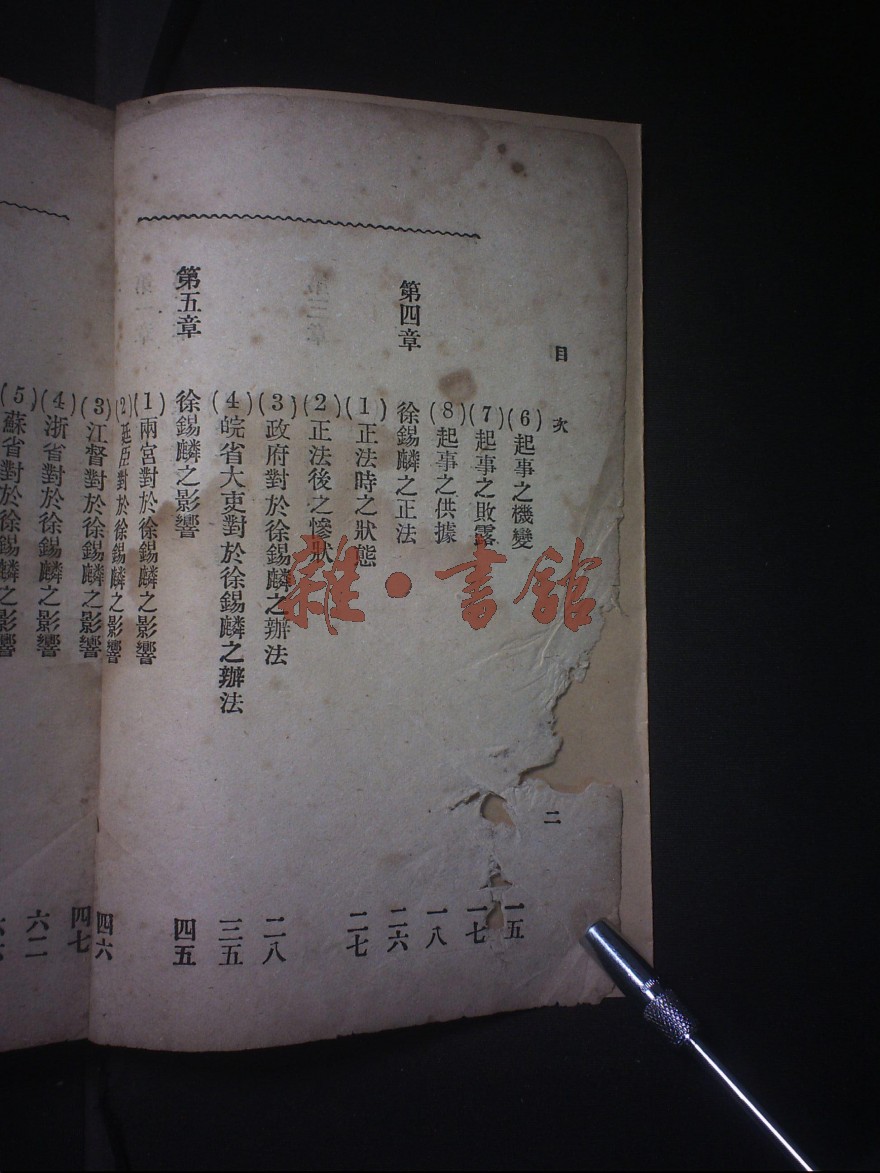 目次 二
(6)起事之機變 一五
(7)起事之敗露 一七
(8)起事之供據 一八
第四章 徐錫麟之正法 二六
(1)正法時之狀態 二七
(2)正法後之慘狀
(3)政府對於徐錫麟之辦法 二八
(4)皖省大吏對於徐錫麟之辦法 三五
第五章 徐錫麟之影響 四五
(1)兩宮對於徐錫麟之影響
(2)廷臣對於徐錫麟之影響 四六
(3)江督對於徐錫麟之影響 四七
(4)浙省對於徐錫麟之影響 六二
(5)蘇省對於徐錫麟之影響
雜·書館